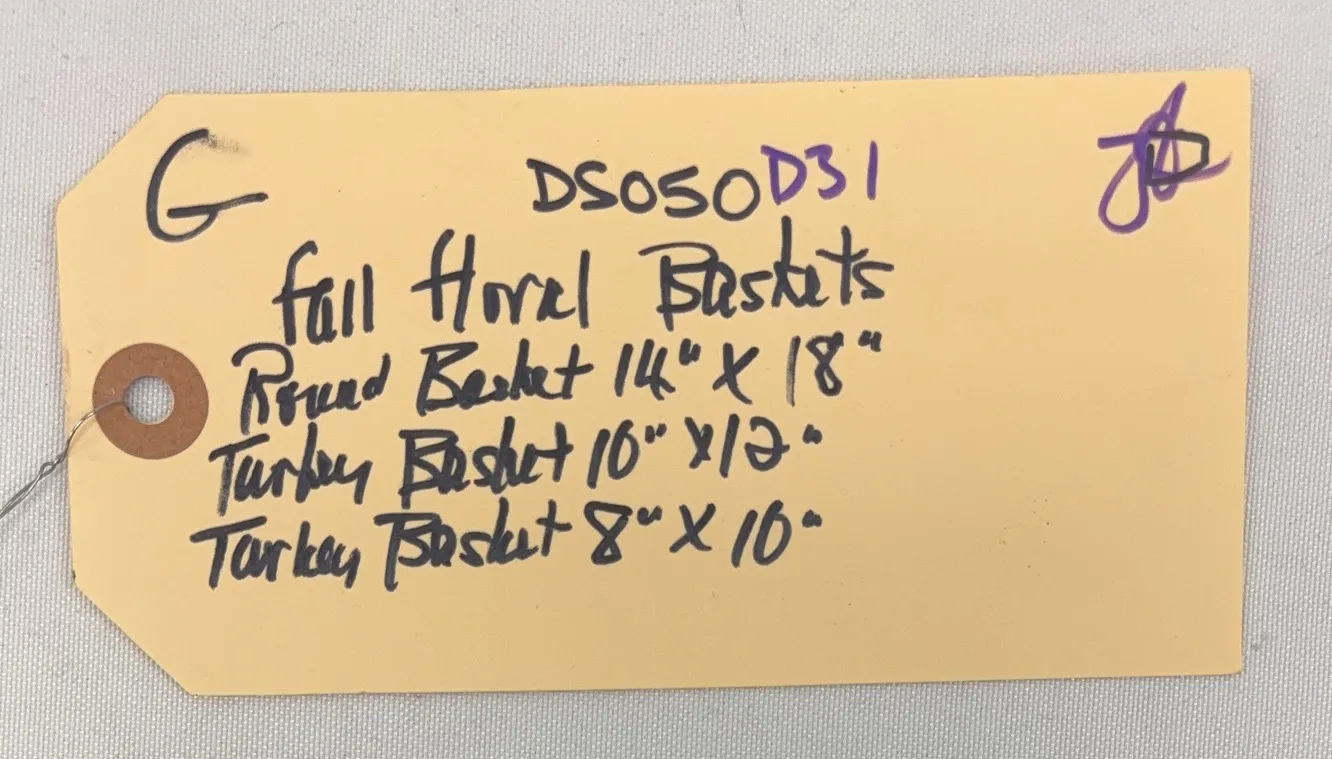 G
DS050D31
D
Fall Floral Baskets
Round Basket 14" X 18"
Turkey Basket 10" X 12"
Turkey Basket 8" X 10"